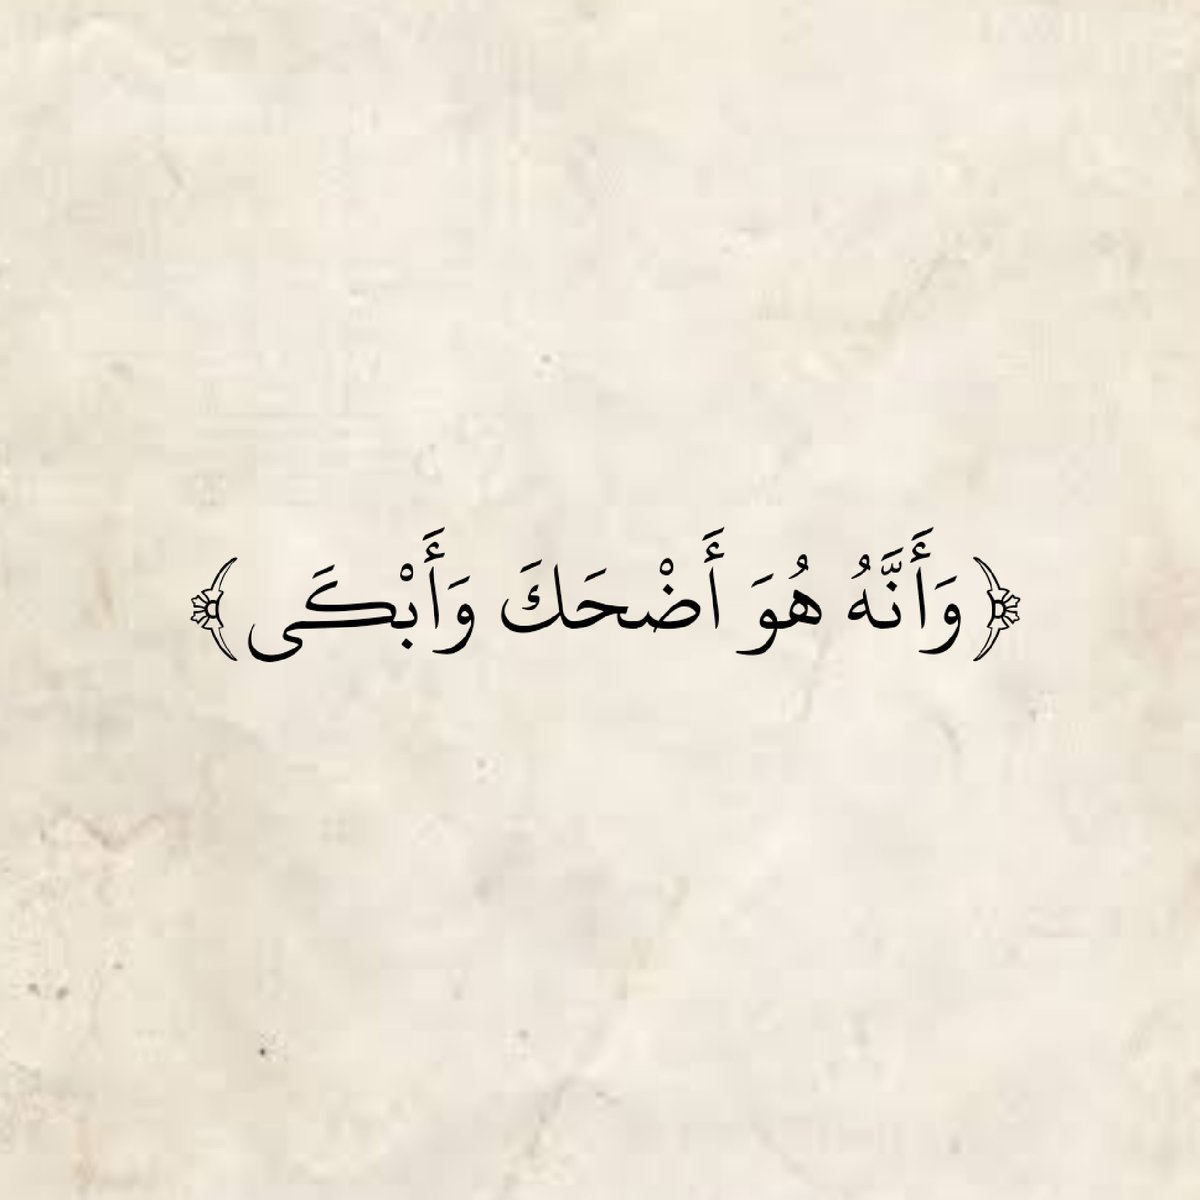 ﴿وَأَنَّهُ هُوَ أَضْحَكَ وَأَبْكَى﴾